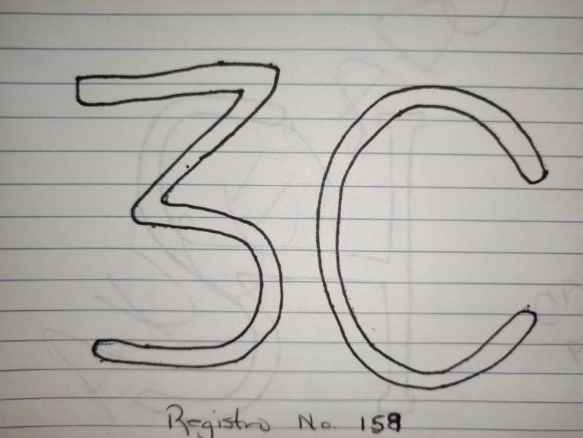 3C
Registro No. 159